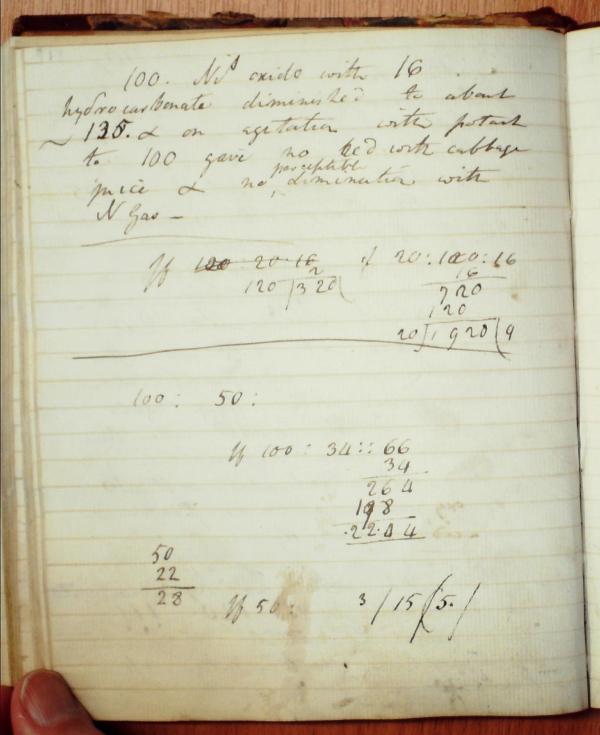 100. Nis oxide with 16
hydrocarbonate diminished to about
~ 125. & on agitation with potash
to 100 gave no red with cabbage
perceptible
juice & no, diminution with
N Gas —
If 120 20 16 if 20 : 120 : 16
2 16
120 | 320 ( 720
120
20 | 1920 ( 9
100 : 50 :
If 100 : 34 :: 66
34
264
198
.22.44
50
22
28
If 50 : 3 / 15 ( 5. /